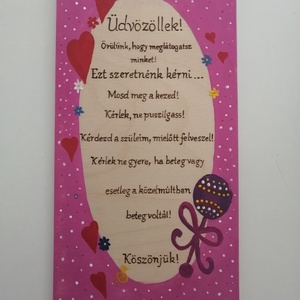 Üdvözöllek!
Örülünk, hogy meglátogatsz
minket!
Ezt szeretnénk kérni...
Mosd meg a kezed!
Kérlek, ne puszilgass!
Kérdezd a szüleim, mielőtt felveszel!
Kérlek ne gyere, ha beteg vagy
esetleg a közelmúltban
beteg voltál!
Köszönjük!